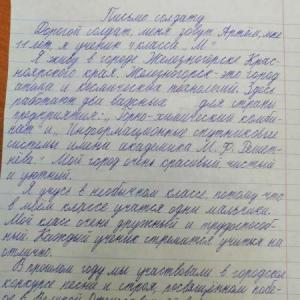 Письмо солдату
Дорогой солдат, меня зовут Артём, мне
11 лет, я ученик 4 класса „М"
Я живу в городе Железногорске Крас-
ноярского края. Железногорск - это город
атома и космических технологий. Здесь
работают два важные для страны
предприятия: „Горно-химический комби-
нат" и „Информационные спутниковые
системы имени академика М. Ф. Решет-
нёва". Мой город очень красивый, чистый
и уютный.
Я учусь в необычном классе, потому что
в моём классе учатся одни мальчики.
Мой класс очень дружный и трудоспособ-
ный. Каждый ученик стремится учиться на
отлично.
В прошлом году мы участвовали в городском
конкурсе песни и строя, посвящённом побе-
де в Великой Отечественной